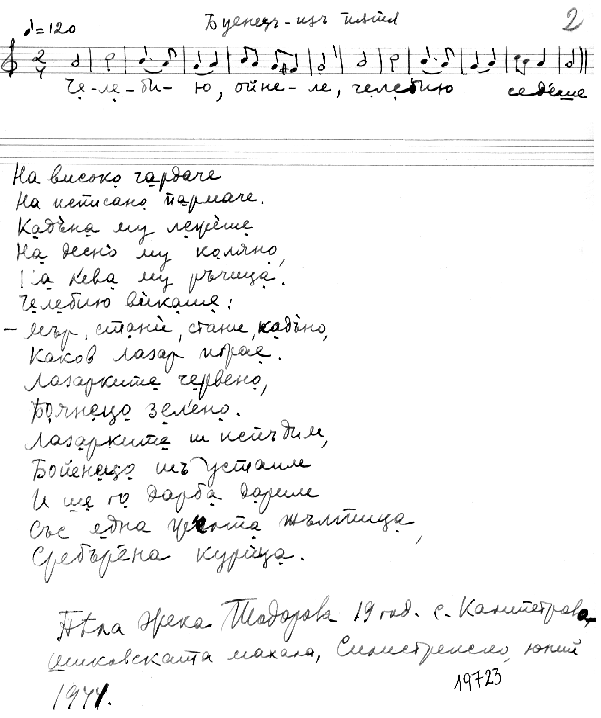 Буенец - изъ пѫтя
2
♩=120
2/4
Че-ле-би-ю, ойне-ле, челебию седеше
На високо чардаче
На писано пармаче.
Кадъна му лежеше
На десно му коляно,
На лева му ръчица.
Челебию викаше:
– Мър, стани, стани, кадъно,
Каков лазар играе.
Лазарките червено,
Боянецо зелено.
Лазарките ш испъдим,
Боенецо шъ устаим
И ще го дарба дариме
Със една жълтица,
Сребърена курица.
Пѣла Тодорова 19 год. с. Калипетрово,
махала, Силистренско, юний
19723